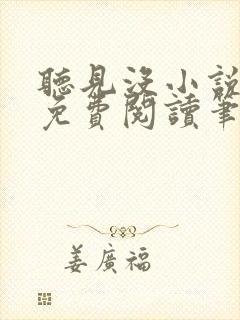 聽見沒小說
免費閱讀筆
姜廣福